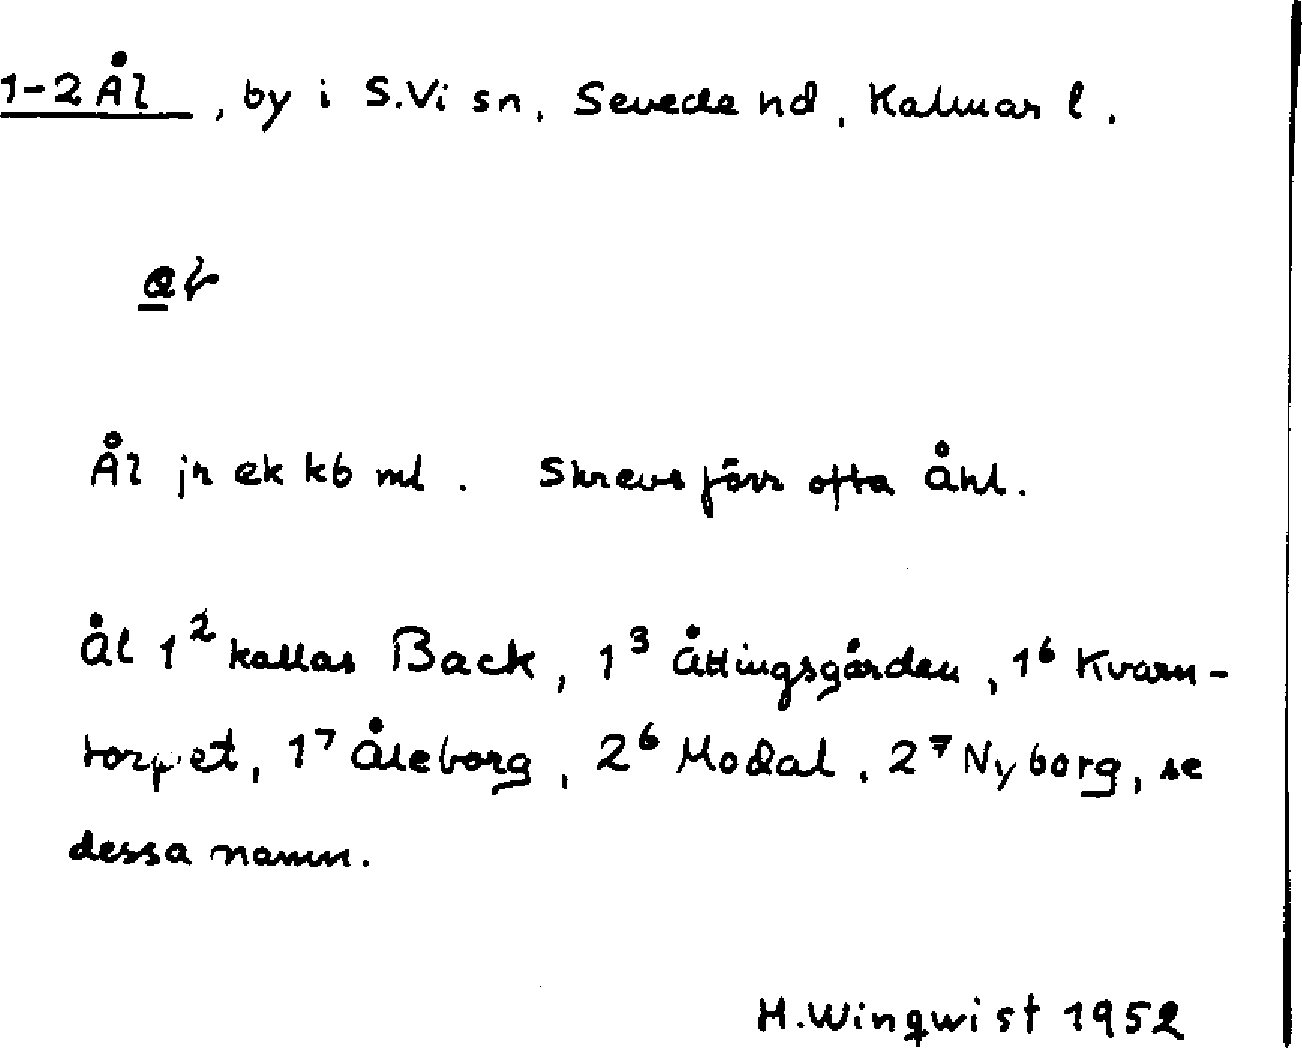 1-2 Ål, by i S.Vi sn, Sevede hd, Kalmar l.
Ål jr ek kb ml. Skrevs förr ofta Åhl.
Ål 1² kallas Back, 1³ Åttingsgården, 1⁶ Kvarn-
torpet, 1⁷ Åleborg, 2⁶ Modal, 2⁷ Nyborg, se
dessa namn.
H. Wingwist 1952